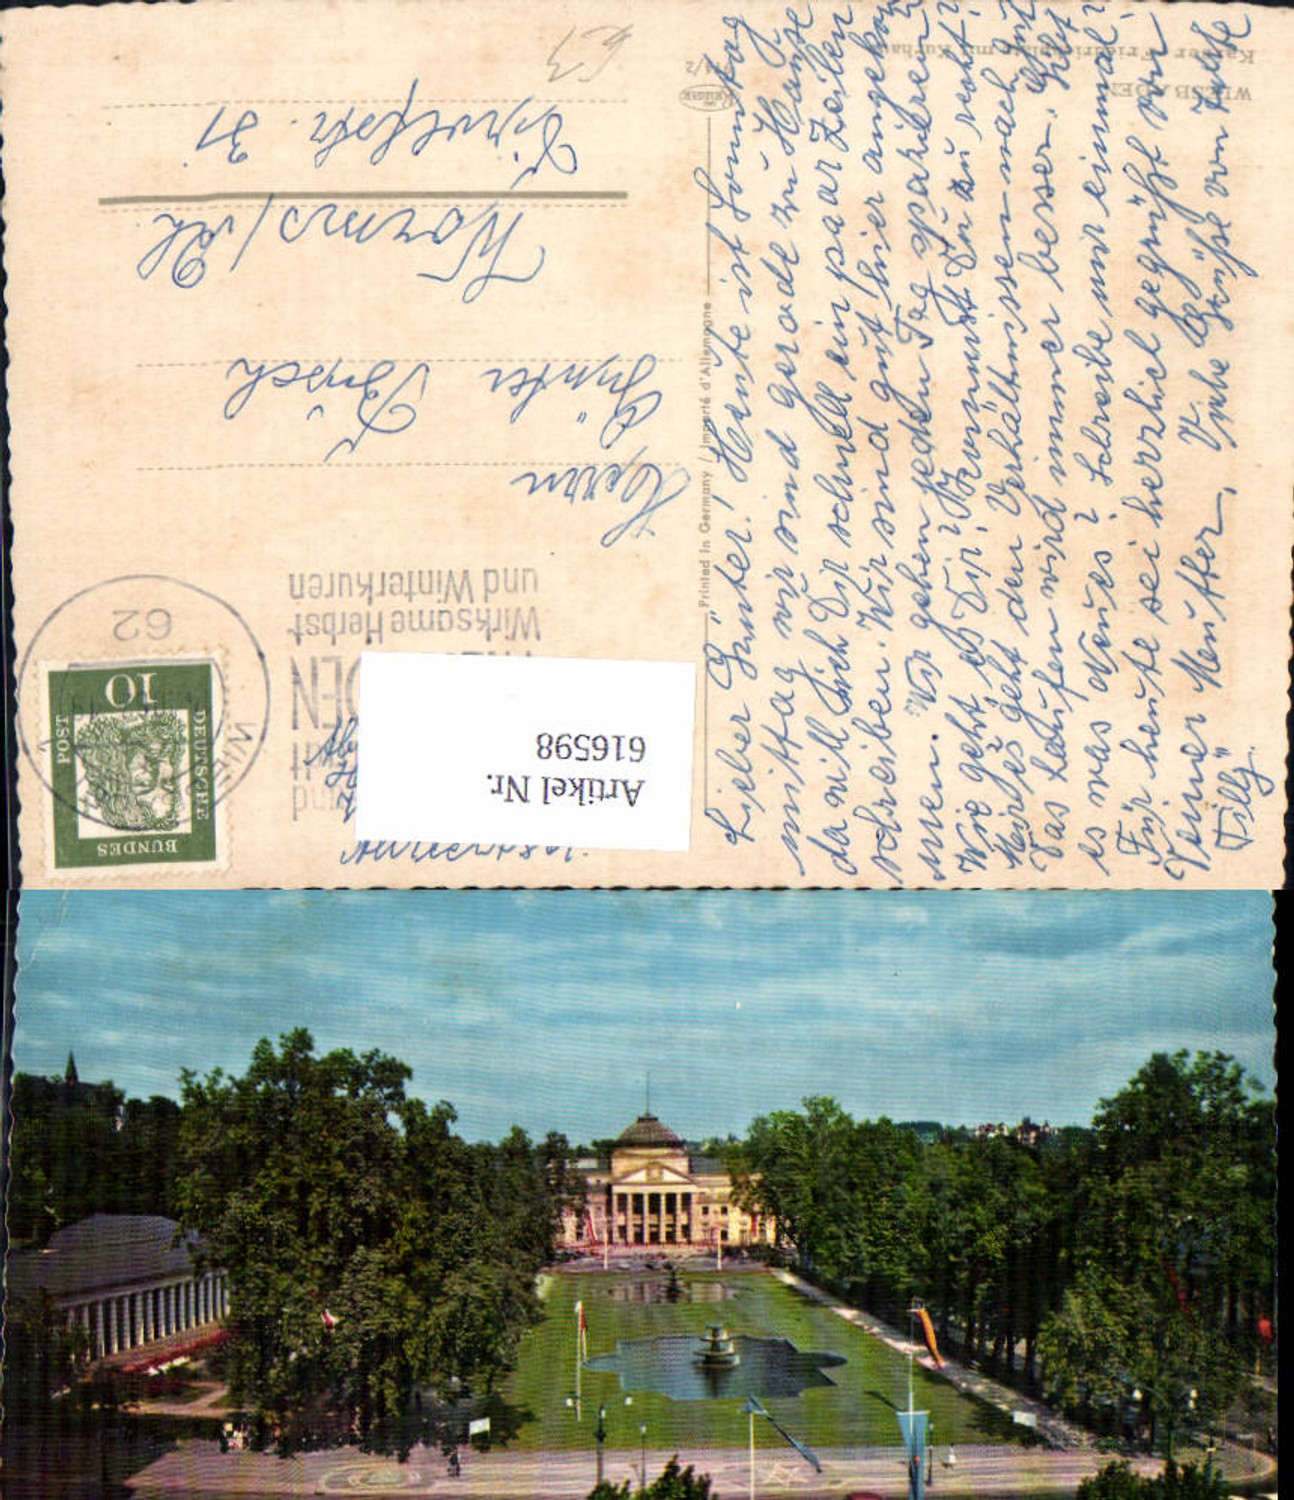 WIESBADEN
Kaiser Friedrichplatz mit Kurhaus
Lieber Günter! Heute ist Sonntag
mittag wir sind gerade zu Hause
da will ich Dir schnell ein paar Zeilen
schreiben. Wir sind gut hier angekom
men. Wir gehen jeden Tag spazieren.
Wie geht es Dir? Kommst Du zu recht?
Mir geht es den Verhältnissen nach gut
Das Laufen wird immer besser. Gibt
es was Neues? Schreibe mir einmal?
Für heute sei herzlich gegrüßt von
Deiner Mutter. Viele Grüße von Tante
Tilly.
Printed in Germany / Importé d'Allemagne
KRÜGER
62
Wirksame Herbst-
und Winterkuren
DEUTSCHE
BUNDES
POST
10
Artikel Nr.
616598
Herrn
Günter
Worms/Rh.
31